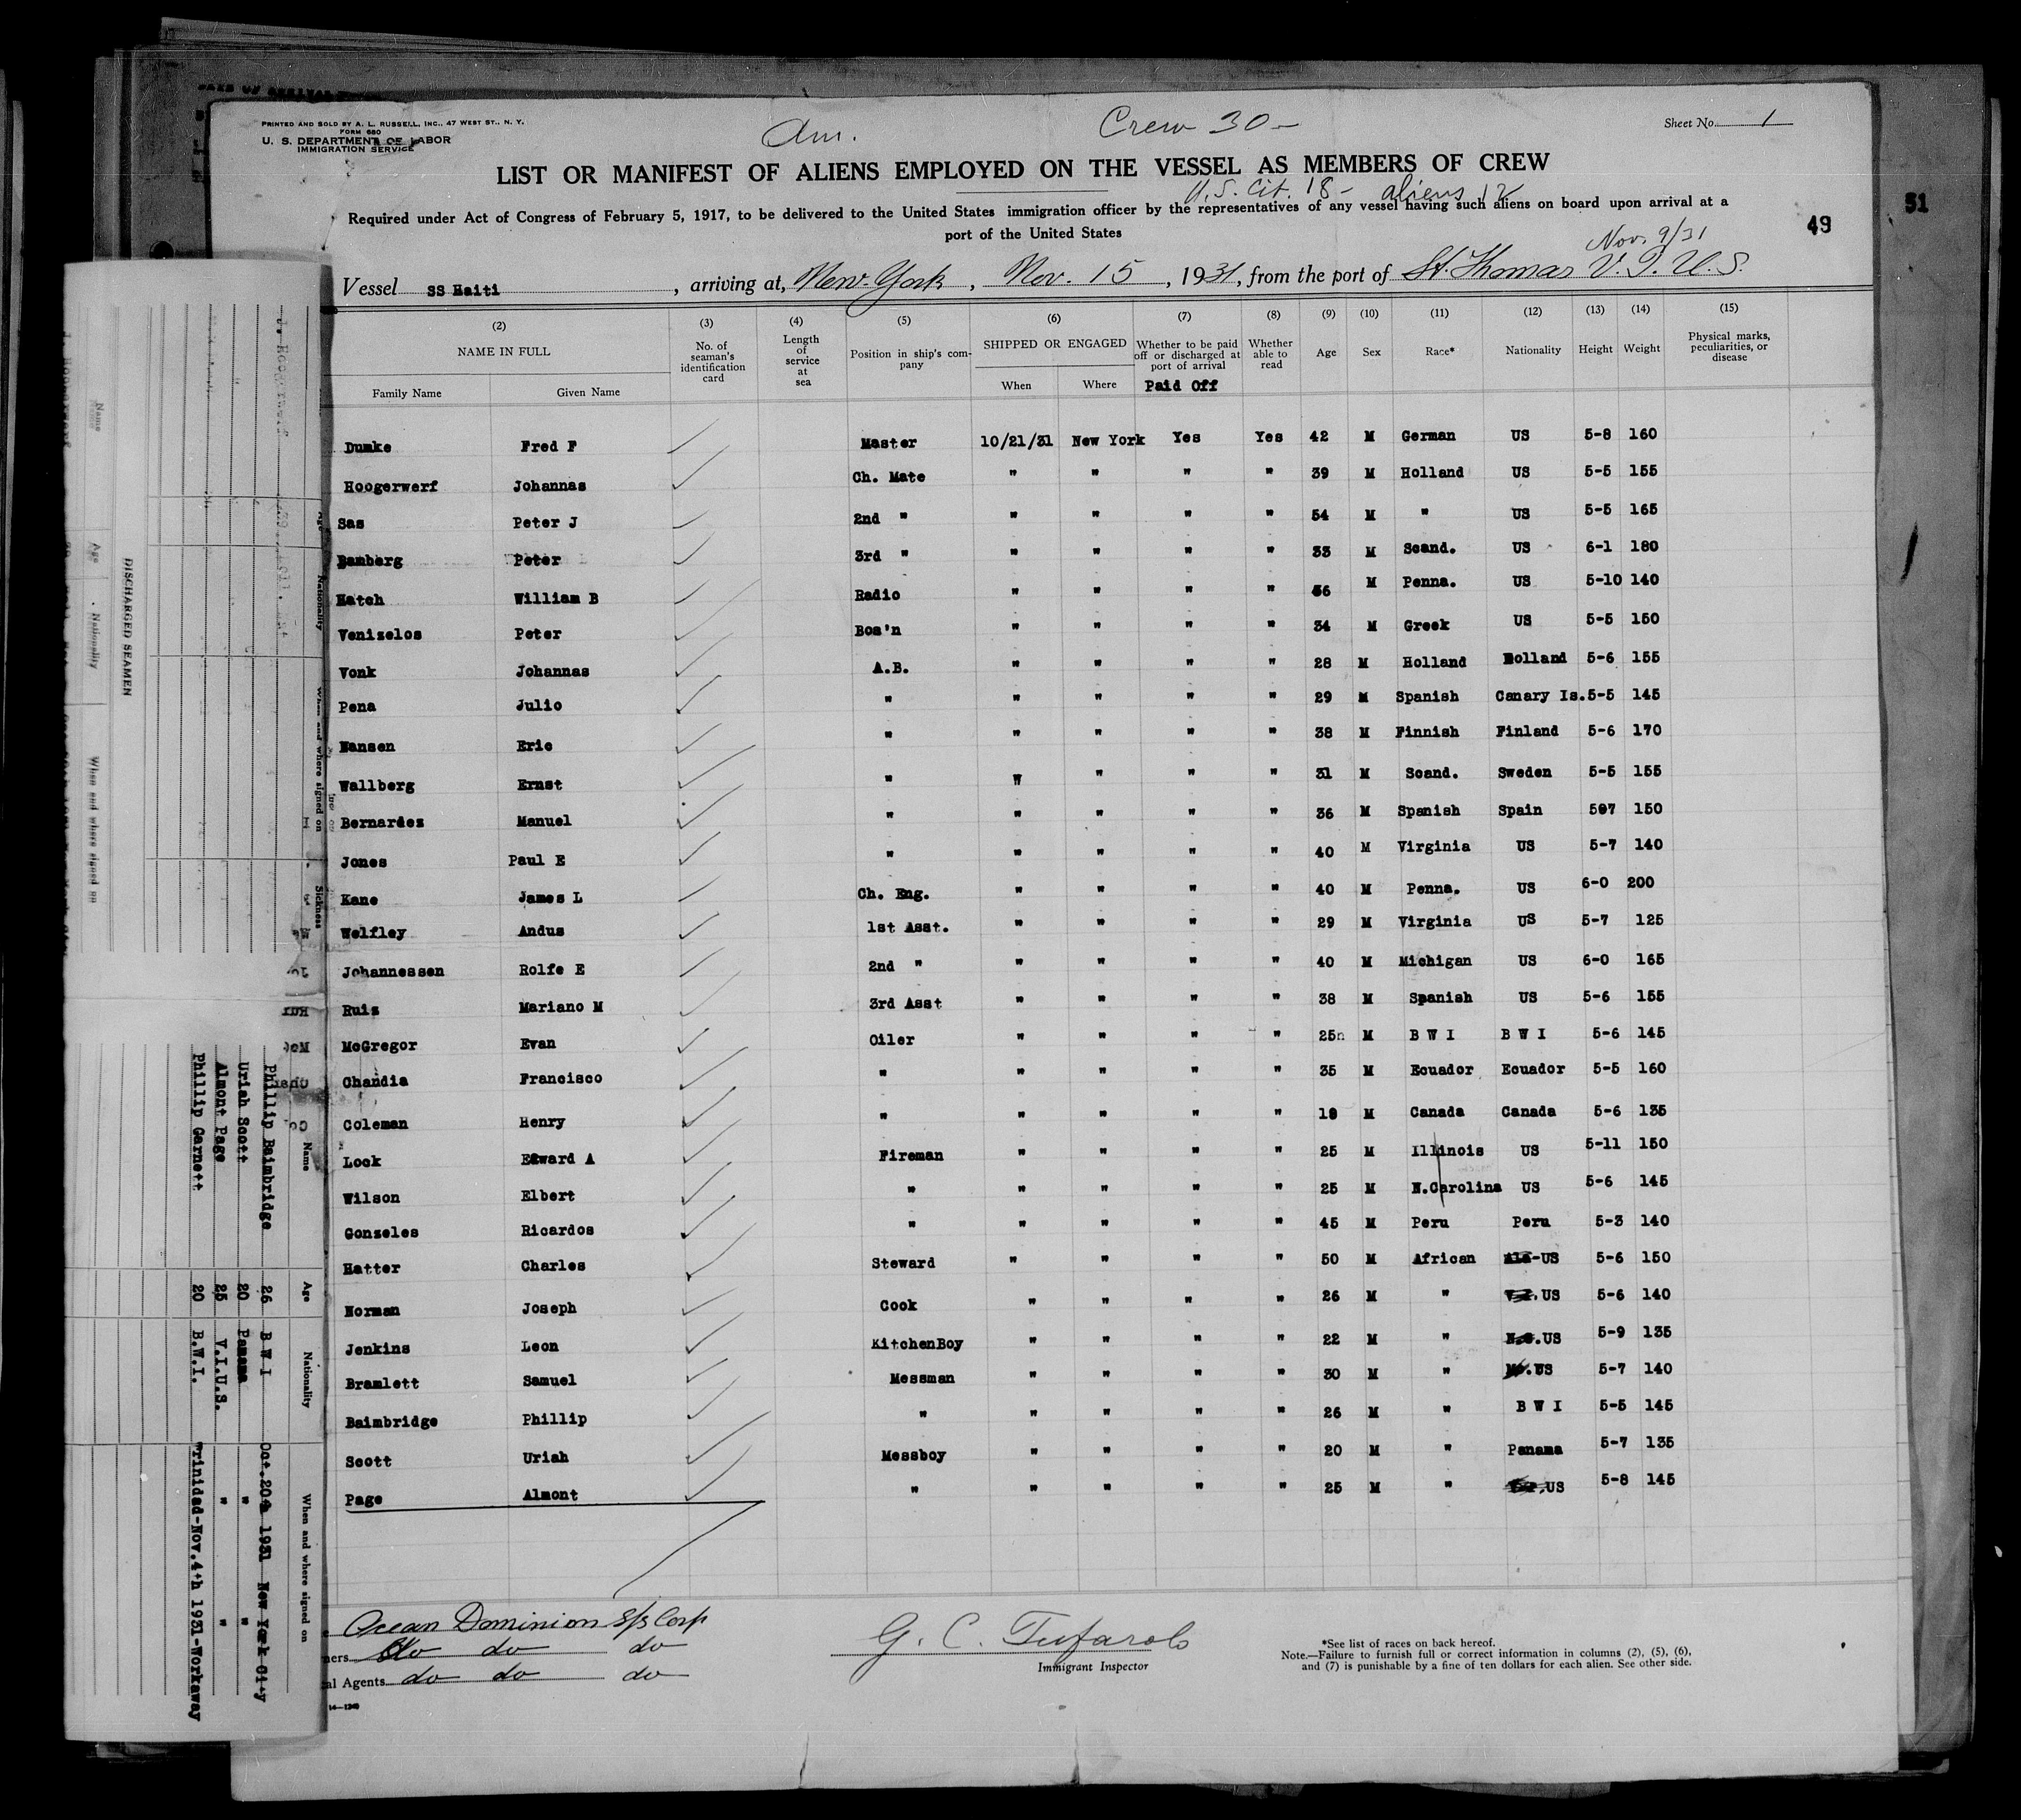 PRINTED AND SOLD BY A. L. RUSSELL, INC., 47 WEST ST., N. Y.
FORM 680
U. S. DEPARTMENT OF LABOR
IMMIGRATION SERVICE
Am.
Crew 30-
Sheet No. 1
LIST OR MANIFEST OF ALIENS EMPLOYED ON THE VESSEL AS MEMBERS OF CREW
U.S. Cit. 18- aliens 12
Required under Act of Congress of February 5, 1917, to be delivered to the United States immigration officer by the representatives of any vessel having such aliens on board upon arrival at a
port of the United States
49
51
Nov. 9/31
Vessel SS Haiti, arriving at, New York, Nov. 15, 1931, from the port of St. Thomas V. I. U. S.
(2) (3) (4) (5) (6) (7) (8) (9) (10) (11) (12) (13) (14) (15)
NAME IN FULL No. of seaman's identification card Length of service at sea Position in ship's company SHIPPED OR ENGAGED Whether to be paid off or discharged at port of arrival Whether able to read Age Sex Race* Nationality Height Weight Physical marks, peculiarities, or disease
Family Name Given Name When Where Paid Off
Dumke Fred F Master 10/21/31 New York Yes Yes 42 M German US 5-8 160
Hoogerwerf Johannas Ch. Mate " " " " 39 M Holland US 5-5 155
Sas Peter J 2nd " " " " " 54 M " US 5-5 165
Bamberg Peter 3rd " " " " " 33 M Scand. US 6-1 180
Hatch William B Radio " " " " 36 M Penna. US 5-10 140
Venizelos Peter Bos'n " " " " 34 M Greek US 5-5 150
Vonk Johannas A.B. " " " " 28 M Holland Holland 5-6 155
Pena Julio " " " " " 29 M Spanish Canary Is. 5-5 145
Hansen Eric " " " " " 38 M Finnish Finland 5-6 170
Wallberg Ernst " " " " " 31 M Scand. Sweden 5-5 155
Bernardez Manuel " " " " " 36 M Spanish Spain 507 150
Jones Paul E " " " " " 40 M Virginia US 5-7 140
Kane James L Ch. Eng. " " " " 40 M Penna. US 6-0 200
Welfley Andus 1st Asst. " " " " 29 M Virginia US 5-7 125
Johannessen Rolfe E 2nd " " " " " 40 M Michigan US 6-0 165
Ruiz Mariano M 3rd Asst " " " " 38 M Spanish US 5-6 155
McGregor Evan Oiler " " " " 25n M B W I B W I 5-6 145
Chandia Francisco " " " " " 35 M Ecuador Ecuador 5-5 160
Coleman Henry " " " " " 19 M Canada Canada 5-6 135
Lock Edward A Fireman " " " " 25 M Illinois US 5-11 150
Wilson Elbert " " " " " 25 M N.Carolina US 5-6 145
Gonzeles Ricardos " " " " " 45 M Peru Peru 5-3 140
Hatter Charles Steward " " " " 50 M African Ala-US 5-6 150
Norman Joseph Cook " " " " 26 M " US 5-6 140
Jenkins Leon KitchenBoy " " " " 22 M " US 5-9 135
Bramlett Samuel Messman " " " " 30 M " US 5-7 140
Baimbridge Phillip " " " " " 26 M " B W I 5-5 145
Scott Uriah Messboy " " " " 20 M " Panama 5-7 135
Page Almont " " " " " 25 M " US 5-8 145
Ocean Dominion S/S Corp
ners do do do
al Agents do do do
14-1240
G. C. Tufarolo
Immigrant Inspector
*See list of races on back hereof.
Note.—Failure to furnish full or correct information in columns (2), (5), (6),
and (7) is punishable by a fine of ten dollars for each alien. See other side.
DISCHARGED SEAMEN
Name Age Nationality When and where signed on
Name Age Nationality When and where signed on
Phillip Baimbridge 26 B W I Oct.20th 1931 New York City
Uriah Scott 20 Panama " "
Almont Page 25 V.I.U.S. " "
Phillip Garnett 20 B.W.I. Trinidad-Nov.4th 1931-Workaway
Age
Nationality
When and where signed on
Sickness